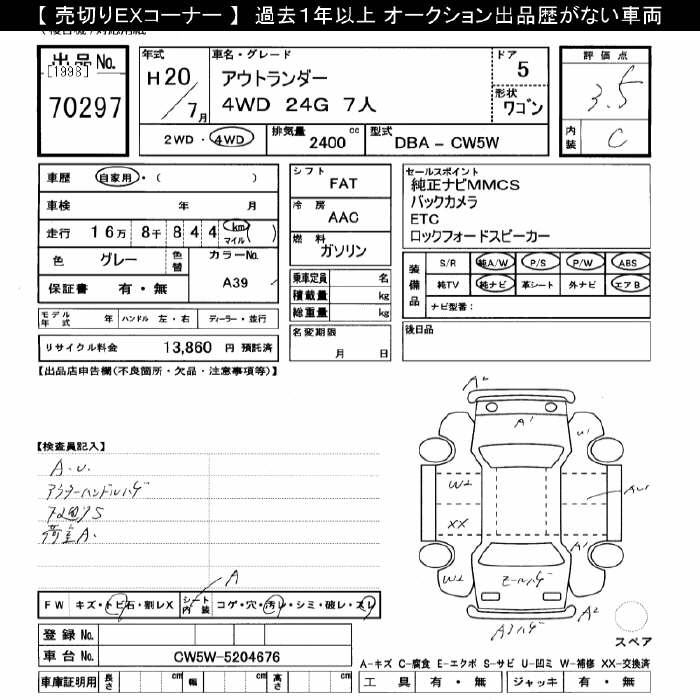 【 売切りEXコーナー 】 過去１年以上 オークション出品歴がない車両
出品No.
[1998]
70297
年式
H20
7月
車名・グレード
アウトランダー
4WD 24G 7人
ドア
5
形状
ワゴン
評価点
3.5
内装
C
2WD・4WD
排気量
2400 cc
型式
DBA - CW5W
車歴
自家用・( )
車検 年 月
走行 16万 8千 8 4 4 km マイル ( )
色
グレー
色替
カラーNo.
A39
保証書 有・無
シフト
FAT
冷房
AAC
燃料
ガソリン
乗車定員 名
積載量 kg
総重量 kg
セールスポイント
純正ナビMMCS
バックカメラ
ETC
ロックフォードスピーカー
装備品
S/R 純A/W P/S P/W ABS
純TV 純ナビ 革シート 外ナビ エアB
ナビ型番:
モデル年式 年 ハンドル 左・右 ディーラー・並行
リサイクル料金 13,860 円 預託済
名変期限
月 日
後日品
【出品店申告欄(不良箇所・欠品・注意事項等)】
【検査員記入】
A.U.
アウターハンドルハゲ
荷室A.
A2
A1
U1
W2
XX
AU1
A1
W2
A2
A
FW キズ・トビ石・割レX
シート内装 コゲ・穴・汚レ・シミ・破レ・スレ
登録 No.
車台 No. CW5W-5204676
車庫証明用 長さ cm 幅 cm 高さ cm
スペア
A-キズ C-腐食 E-エクボ S-サビ U-凹ミ W-補修 XX-交換済
工具 有・無 ジャッキ 有・無